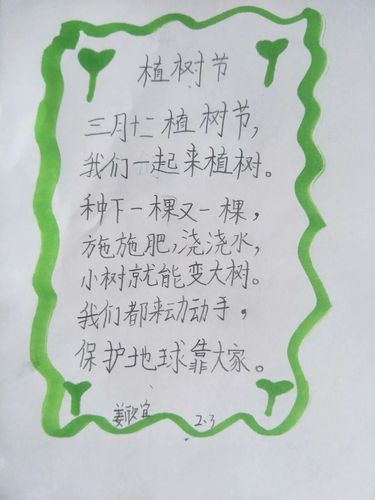 植树节
三月十二植树节，
我们一起来植树。
种下一棵又一棵，
施施肥，浇浇水，
小树就能变大树。
我们都来动动手，
保护地球靠大家。
姜欣宜 2.3